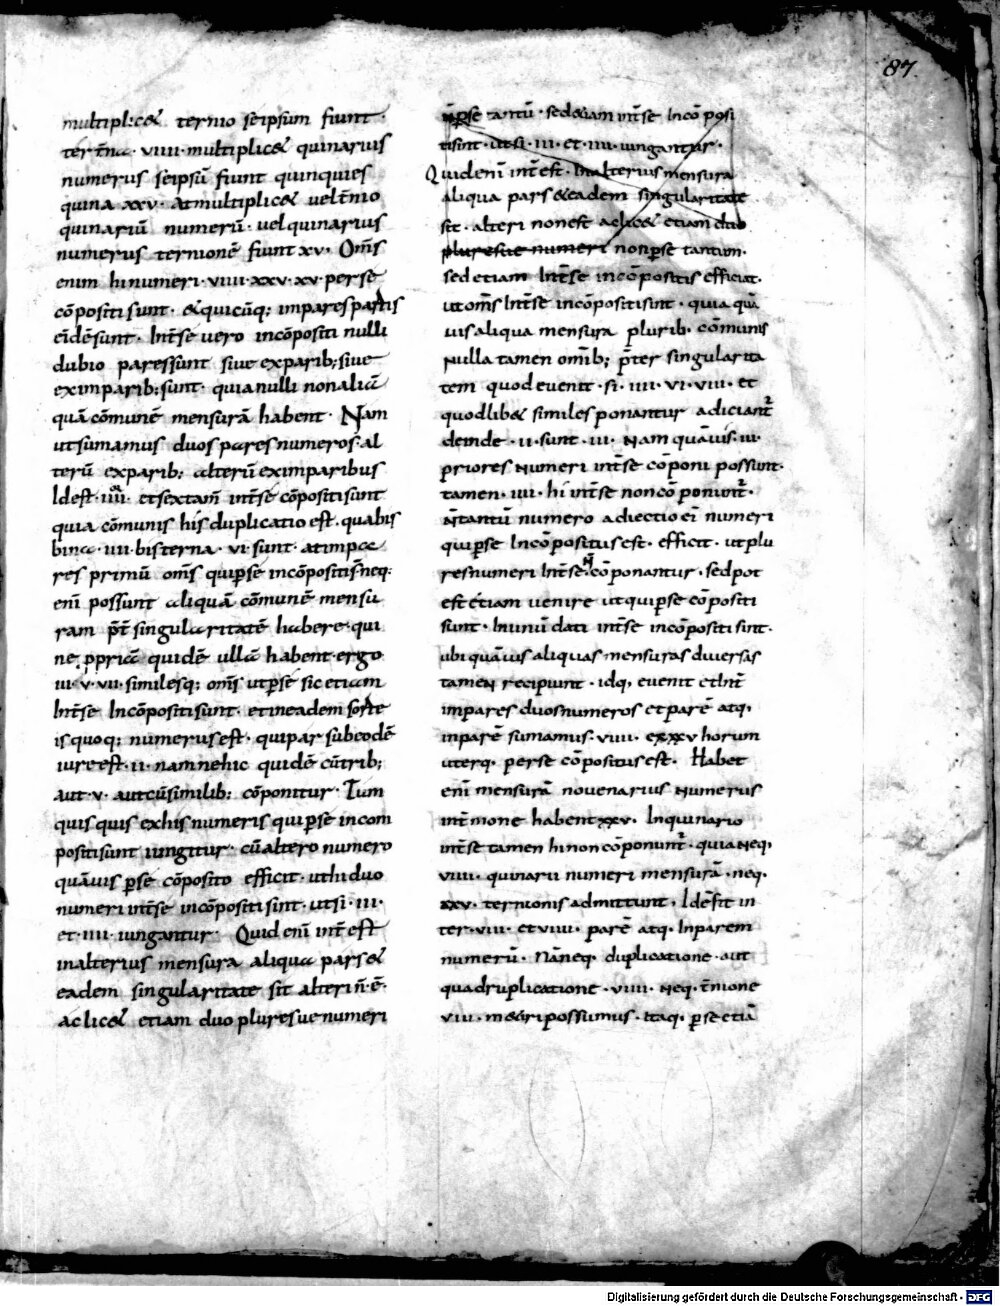 87
multiplic& ternio seipsum fiunt·
ter t̄na· viiii· multiplic& quinarius
numerus seipsū fiunt quinquies
quina xxv· At multiplic& uel t̄nio
quinariū numerū· uel quinarius
numerus ternionē fiunt xv· Om̄s
enim hi numeri· viiii· xxv· xv· per se
cōpositi sunt· & quicūq; impares partis
eidē sunt· Int̄se uero incōpositi nulli
dubio pares sunt siue ex parib; siue
ex imparib; sunt· quia nulli non aliā
quā cōmunē mensurā habent· Nam
ut sumamus duos pares numeros· al
terū ex parib; alterū ex imparibus
Id est· iiii· et sextam̄ int̄se cōpositi sunt
quia cōmunis his duplicatio est· qua bis
bina· iiii· bis terna· vi· sunt· at impa
res primū om̄s qui p̄se incōpositi s̄· neq:
eni possunt aliquā cōmunē mensu
ram p̄t singularitatē habere· qui
ne ppriā quidē ullā habent· ergo
iii· v· vii· similesq; om̄s ut p̄se sic etiam
Int̄se Incōpositi sunt· et in eadem sorte
is quoq; numerus est· qui par sub eodē
iure est· ii· nam nehic quidē cū trib;
Aut· v· aut cū similib: cōponitur· Tum
quis quis ex his numeris qui p̄se incom
positi sunt iungitur· cū altero numero
quāuis p̄se cōposito efficit· ut hi duo
numeri int̄se incōpositi sint· ut si· iii·
et· iiii· iungantur· Quid eni int̄est
in alterius mensura aliqua pars &
eadem singularitate sit alteri n̄·ē·
ac lic& etiam duo pluresue numeri
n̄ p̄se tantū· sed &iam int̄se Incōposi
ti sint· ut si· iii· et· iiii· iungantur·
Quid eni int̄est· In alterius mensura
aliqua pars & eadem singularitate
sit· alteri non est ac lic& etiam duo
pluresue numeri non p̄se tantum·
sed etiam Int̄se incōpositis efficiat·
ut om̄s Int̄se incōpositi sint· quia quā
uis aliqua mensura plurib· cōmunis
Nulla tamen omib; p̄ter singularita
tem quod euenit· si· iiii· vi· viii· et
quodlib& similes ponantur adiciant̄
deinde· ii· sunt· iii· Nam quāuis· iii·
priores Numeri int̄se cōponi possunt·
tamen· iiii· hi int̄se non cōponunt̄·
N̄ tantū numero adiectio ei numeri
qui p̄se Incōpositus est· efficit· ut plu
res numeri Int̄se N̄ cōponantur· sed pot
est etiam uenire ut qui p̄se cōpositi
sunt· In unū dati int̄se incōpositi sint·
ubi quāuis aliquas mensuras diuersis
tamen recipiunt· idq; euenit et Int̄
impares duos numeros et parē atq;
inparē sumamus· viiii· et xxv horum
uterq· per se cōpositus est· Habet
eni mensurā nouenarius Numerus
int̄ mone habent xxv· In quinario
int̄se tamen hi non cōponunt̄· quia Neq;
viiii· quinarii numeri mensurā· neq·
xxv· ternionis admittunt· Idē fit in
ter· viii· et viiii· parē atq· Inparem
numerū· Nā neq· duplicatione· aut
quadruplicatione· viiii· Neq· t̄nione
viii· m&iri possumus· Itaq· p̄se etiā
Digitalisierung gefördert durch die Deutsche Forschungsgemeinschaft · DFG